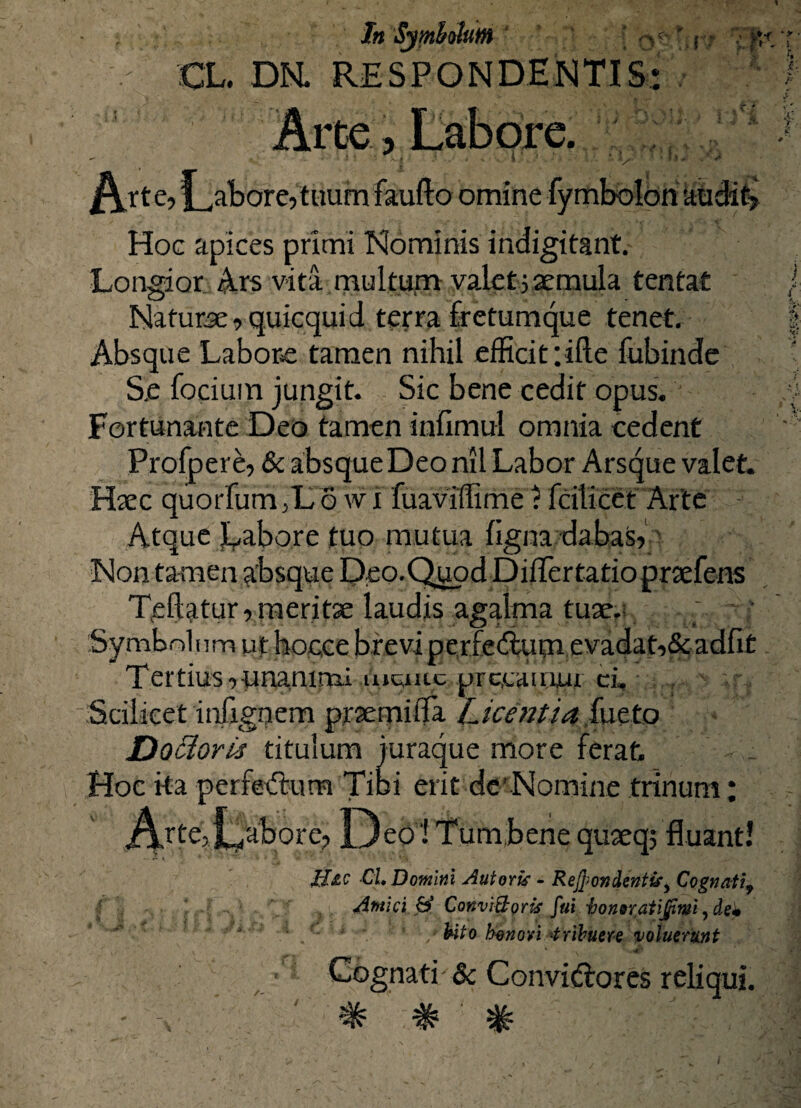 In Symbolum
CL. DN. RESPONDENTIS:
Arte, Labore.
Arte, Labore, tuum fausto omine symbolon audit,
Hoc apices primi Nominis indigitant.
Longior Ars vitâ multum valet; æmula tentat
Naturæ, quicquid terra fretumque tenet.
Absque Labore tamen nihil efficit: iste subinde
Se socium jungit. Sic bene cedit opus.
Fortunante Deo tamen insimul omnia cedent
Prosperè, & absque Deo nîl Labor Arsque valet.
Hæc quorsum, Löwi suavissime? scilicet Arte
Atque Labore tuo mutua signa dabas,
Non tamen absque Deo. Quod Dissertatio præsens
Testatur, meritæ laudis agalma tuæ.
Symbolum ut hocce brevi perfectum evadat, & adsit
Tertius, unanimi mente precamur ei,
Scilicet insignem præmissa Licentia sueto
Doctoris titulum juraque more ferat.
Hoc ita perfectum Tibi erit de Nomine trinum:
Arte, Labore, Deo! Tum bene quæq; fluant!
Hæc Cl. Domini Autoris - Respondentis, Cognati,
Amici & Convictoris sui honoratissimi, de-
bito honori tribuere voluerunt
Cognati & Convictores reliqui.